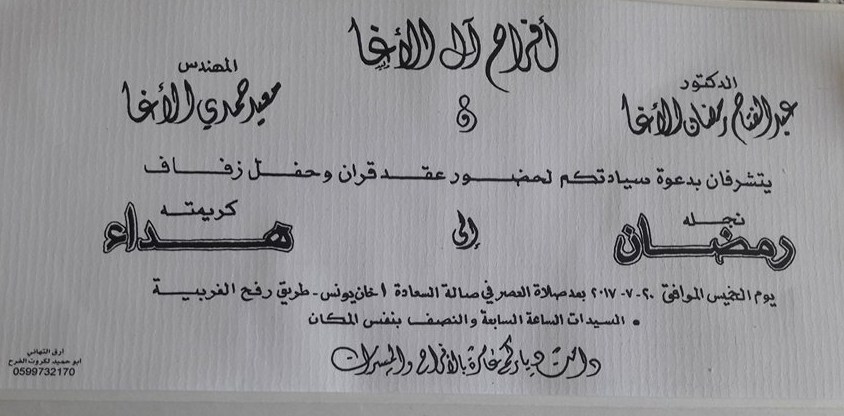 أفراح آل الأغا
الدكتور
عبدالفتاح رمضان الأغا
و
المهندس
سعيد حمدي الأغا
يتشرفان بدعوة سيادتكم لحضور عقد قران وحفل زفاف
نجله
رمضان
إلى
كريمته
هداء
يوم الخميس الموافق ٢٠-٧-٢٠١٧ بعد صلاة العصر في صالة السعادة / خان يونس - طريق رفح الغربية
• السيدات الساعة السابعة والنصف بنفس المكان
دامت دياركم عامرة بالأفراح والمسرات
أرق التهاني
ابو حميد لكروت الفرح
0599732170